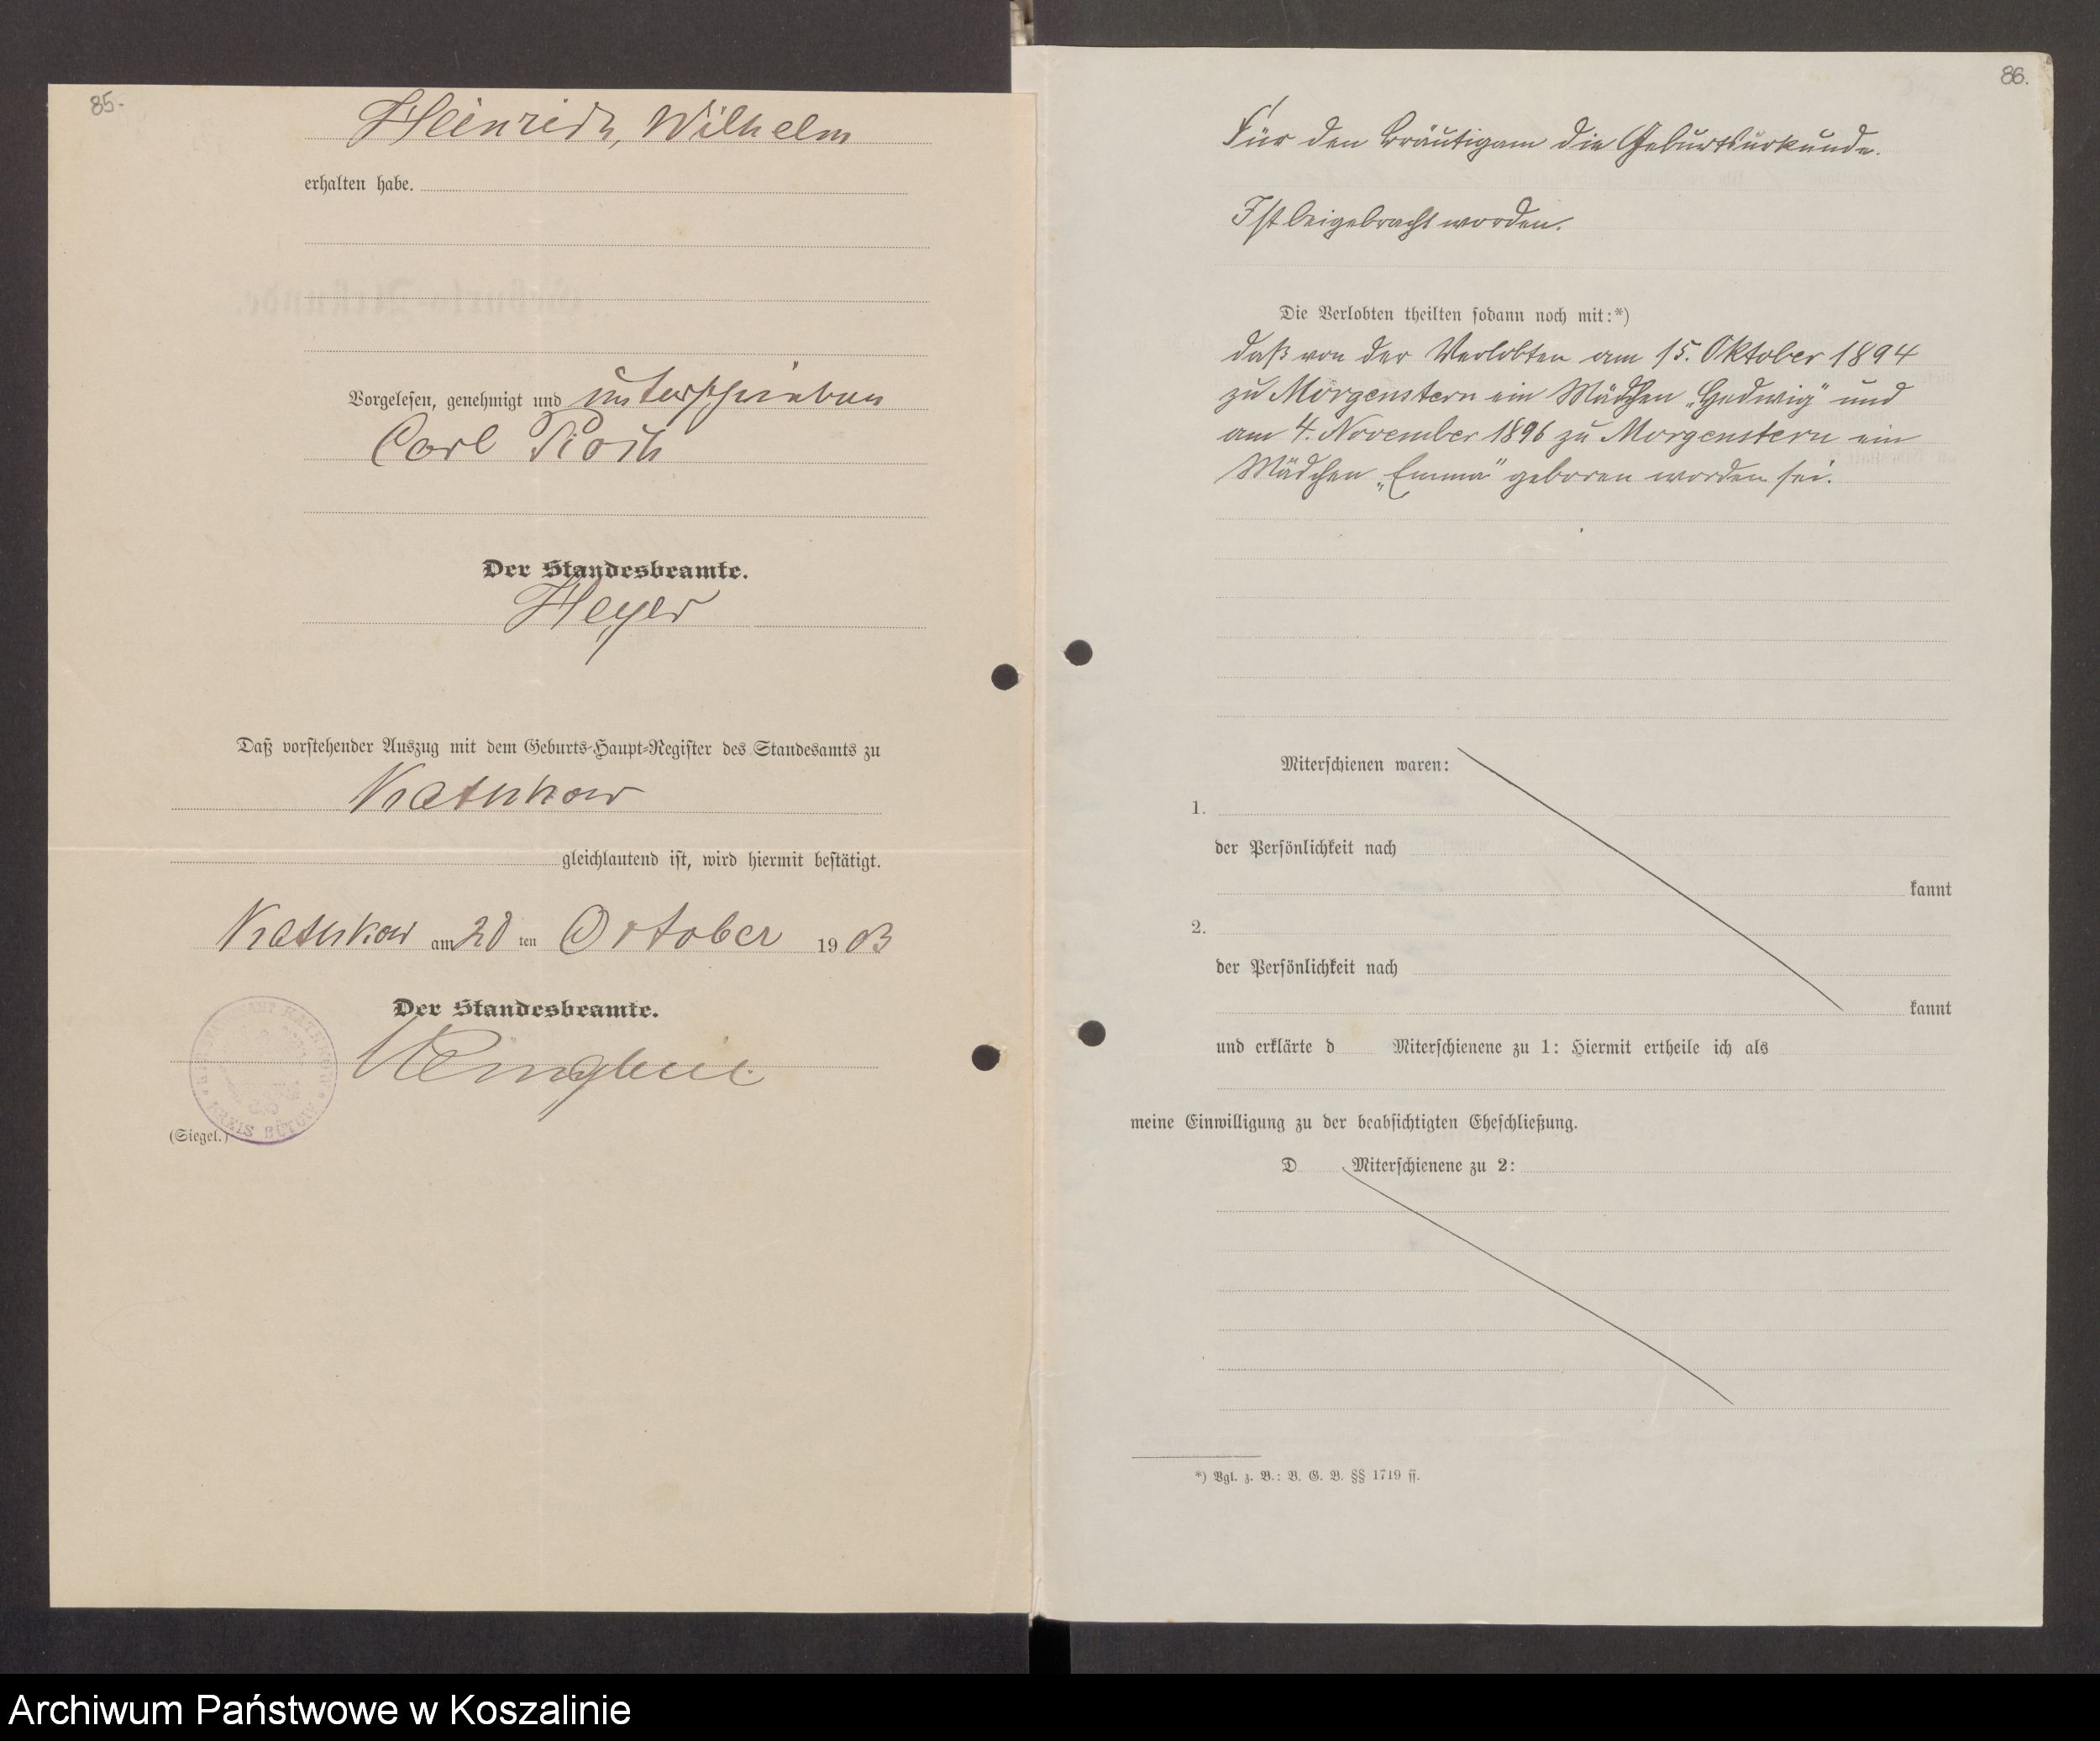 85.
Heinrich, Wilhelm
erhalten habe.
Vorgelesen, genehmigt und unterschrieben
Carl
Der Standesbeamte.
Heyer
Daß vorstehender Auszug mit dem Geburts-Haupt-Register des Standesamts zu
Katkow
gleichlautend ist, wird hiermit bestätigt.
Katkow am 20 ten October 1903
Der Standesbeamte.
KREIS BÜTOW
(Siegel.)
86.
Für den Bräutigam die Geburtsurkunde.
Ist beigebracht worden.
Die Verlobten theilten sodann noch mit:*)
daß von der Verlobten am 15. Oktober 1894
zu Morgenstern ein Mädchen „Hedwig" und
am 4. November 1896 zu Morgenstern ein
Mädchen „Emma" geboren worden sei.
Miterschienen waren:
1.
der Persönlichkeit nach
kannt
2.
der Persönlichkeit nach
kannt
und erklärte d Miterschienene zu 1: Hiermit ertheile ich als
meine Einwilligung zu der beabsichtigten Eheschließung.
D Miterschienene zu 2:
*) Vgl. z. B.: B. G. B. §§ 1719 ff.
Archiwum Państwowe w Koszalinie